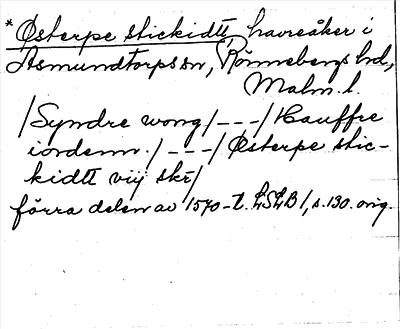 *Østerpe stickidtt, havreåker i
Asmundtorps sn, Rönnebergs hd,
Malm. l.
/Syndre wong/---/Hauffre
iordenn./---/Østerpe stic-
kidtt vij skr/
förra delen av 1570-t. LSLB1, s. 130. orig.